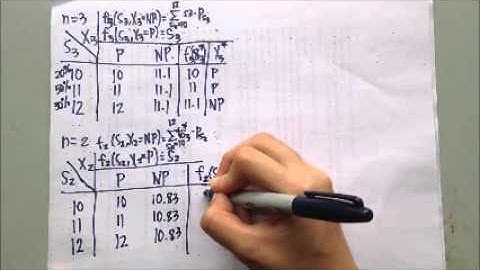 n=3 f₃(S₃,X₃=NP)=Σ S₃·P_S₃
f₃(S₃,X₃=P)=S₃
S₃ X₃ P NP f₃*(S₃) X₃*
20% 10 10 11.1 11.1 P
50% 11 11 11.1 11.1 P
30% 12 12 11.1 11.1 NP
n=2 f₂(S₂,X₂=NP)=Σ f₃*·P_S₂
f₂(S₂,X₂=P)=S₂
S₂ X₂ P NP f₂(S
10 10 10.83
11 11 10.83
12 12 10.83